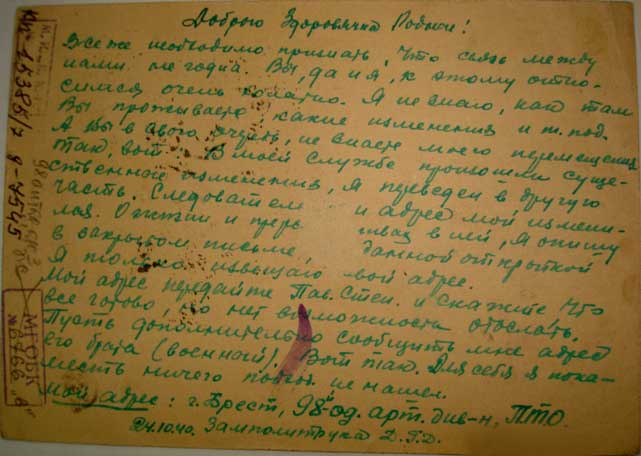 Доброго Здоровячка Родные!
Все же необходимо признать, что связь между
нами не годна. Вы, да и я, к этому отно-
симся очень халатно. Я не знаю, как там
Вы проживаете, какие изменения и т. под.
А Вы в свою очередь, не знаете моего перемещения
Так, вот. В моей службе произошли суще-
ственные изменения, я переведен в другую
часть. Следовател и адрес мой измени-
лся. О жизни и в ней, я опишу
в закрытом письме, данной открыткой
Я только извещаю мой адрес.
Мой адрес передайте Пав. Степ. и скажите, что
все готово, но нет возможности отослать,
Пусть дополнительно сообщить мне адрес
его брата (военный). Вот так. Для себя я пока-
месть ничего не нашел.
Мой адрес: г. Брест, 98 од. арт. див-н, ПТО.
24.10.40. Замполитрука Д. Г. Д.
МГОБК